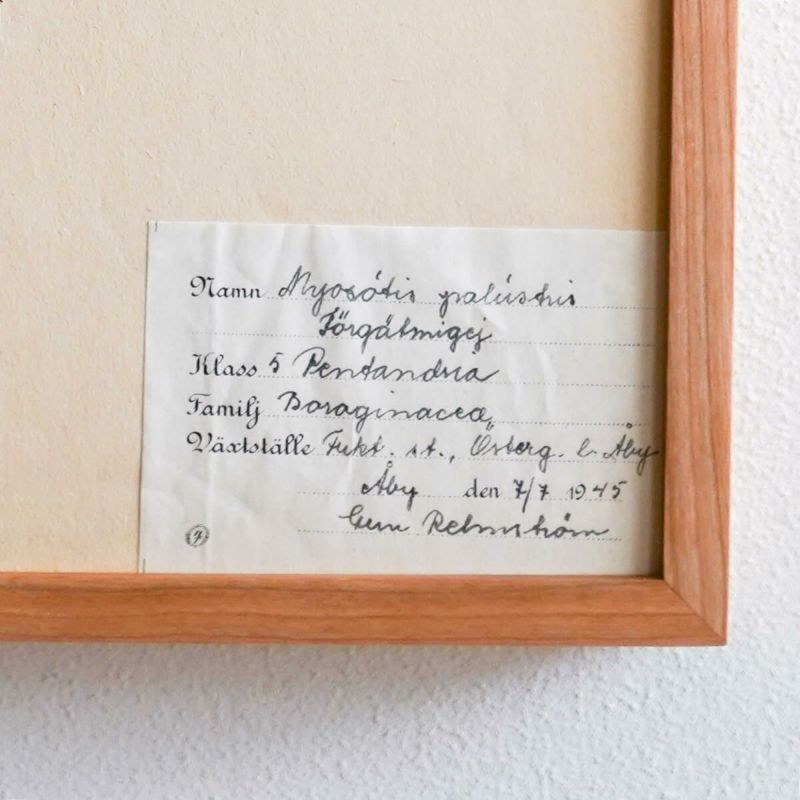 Namn Myosótis palústris
Förgätmigej
Klass 5 Pentandria
Familj Boraginacea,
Växtställe Fukt. st., Österg. l. Åby
Åby den 7/7 1945